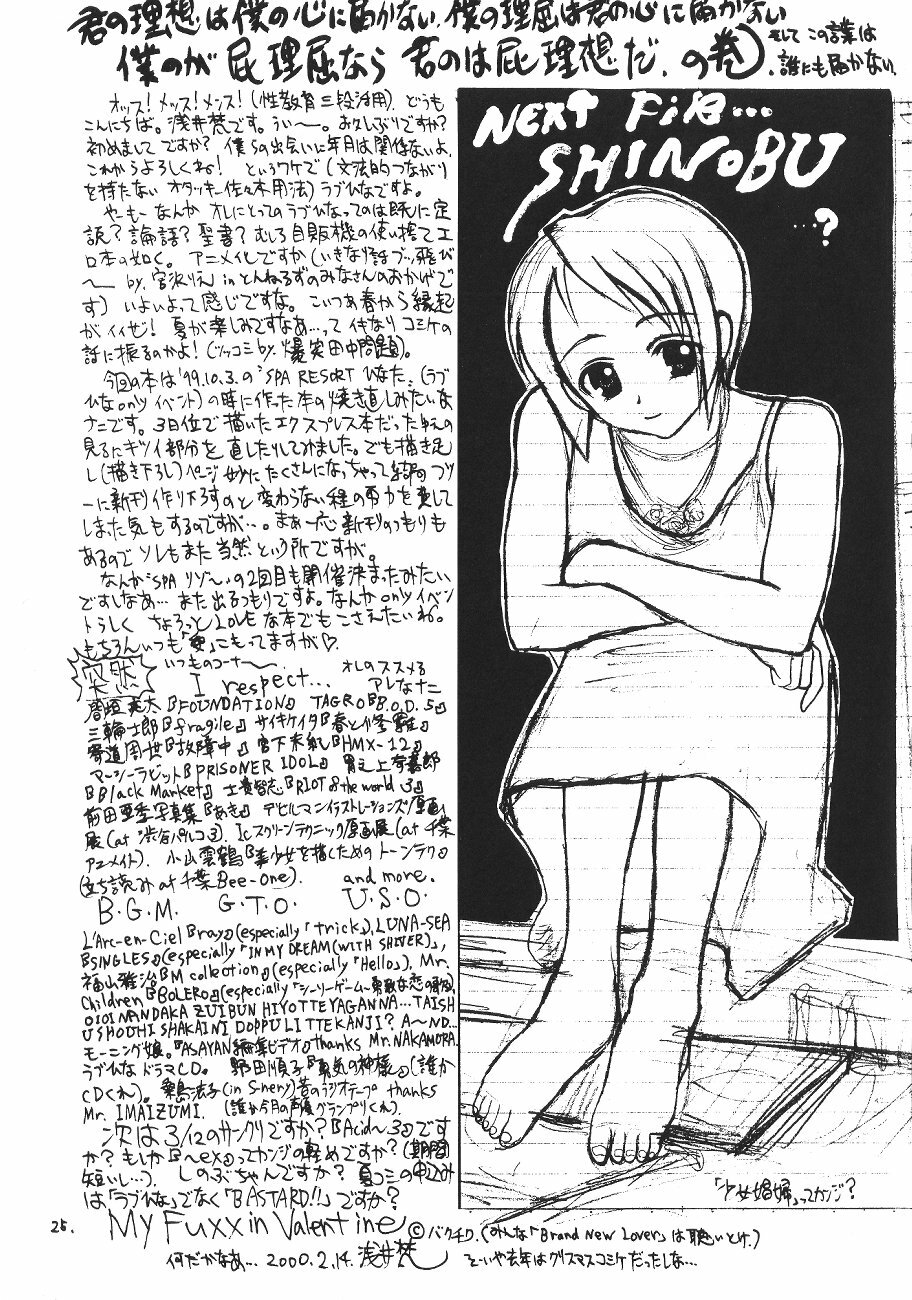 君の理想は僕の心に届かない.僕の理屈は君の心に届かない
僕のが屁理屈なら 君のは屁理想だ.の巻)
.そして この言葉は
誰にも届かない.
オッス!メッス!メンス!(性教育三段活用).どうも
こんにちは。浅井梵です。うぃ〜。お久しぶりですか?
初めまして ですか? 僕らの出会いに年月は関係ないよ.
これからよろしくね! というワケで(文法的つながり
を持たない オタッキー佐々木用法)ラブひなですよ。
やーもーなんか オレにとってのラブひなってのは既に定
説?論語?聖書?むしろ自販機の使い捨てエ
ロ本の如く。アニメ化ですか(いきなり話ブッ飛び
〜 by.宮沢りえ in とんねるずのみなさんのおかげで
す) いよいよって感じですな。こいつあ春から縁起
がイイぜ! 夏が楽しみですなあ…って イキなり コミケの
話に振るのかよ!(ツッコミby.爆笑田中問題)。
今回の本は'99.10.3.の"SPA RESORT ひなた"(ラブ
ひなonlyイベント)の時に作った本の焼き直しみたいな
ナニです。3日位で描いたエクスプレス本だったゆえの
見るにキツイ部分を直したりしてみました。でも描き足
し(描き下ろし)ページ 妙に たくさんになっちゃって結局フツ
ーに新刊作り下ろすのと変わらない程の労力を費して
しまった気もするのですが…。まぁ一応 新刊のつもりも
あるので ソレもまた当然 という所ですが。
なんか"SPA リゾ〜"の2回目も開催決まったみたい
ですしなあ… また出るつもりですよ。なんか onlyイベン
トらしく ちょろっと LOVE な本でもこさえたいね。
もちろんいつも「愛」こもってますが♡
突然
いつものコーナ〜.
I respect…
オレのススメる
アレなナニ
『FOUNDATION』 TAGRO『B.O.D.5』
三輪士郎『fragile』 サイキケイタ『春とか修羅』
寄道周世『故障中』 宮下未紀『HMX-12』
マーシーラビット『PRISONER IDOL』 
『Black Market』 士貴智志『RIOT of the world 3』
前田亜季写真集『あき』 デビルマンイラストレーションズ原画
展(at 渋谷パルコ3). Icスクリーンテクニック原画展(at 千葉
アニメイト). 小山雲鶴『美少女を描くためのトーンテク』
(立ち読み at 千葉Bee-One). and more.
B.G.M. G.T.O. U.S.O.
L'Arc-en-Ciel『ray』(especially「trick」), LUNA-SEA
『SINGLES』(especially「IN MY DREAM(WITH SHIVER)」,
福山雅治『M collection』(especially「Hello」), Mr.
Children『BOLERO』(especially「シーソーゲーム〜勇敢な恋の歌〜」)
NANDAKA ZUIBUN HIYOTTEYAGANNA…TAISH
USHOUHI SHAKAINI DOPPULITTEKANJI? A〜ND…
モーニング娘。『ASAYAN編集ビデオ』thanks Mr.NAKAMORA
ラブひなドラマCD. 野田順子『勇気の神様』(誰か
CDくれ)。 栗島法子(in S-nery)昔のラジオテープ thanks
Mr. IMAIZUMI. (誰か今月の声優グランプリくれ).
次は3/12のサンクリですか?『Acid〜3』です
か? もしか『〜ex』ってカンジの軽めですか?(期間
短いし…). しのぶちゃんですか? 夏コミの申込み
は「ラブひな」でなく『BASTARD!!』ですか?
My Fuxxin Valentine ©バクチク.(みんな「Brand New Lover」は聴いとけ.)
何だかなあ… 2000.2.14.浅井梵 そーいや去年はクリスマスコミケだったしな…
25.
NEXT FiRE…
SHINOBU
…?
「少女娼婦」ってカンジ?